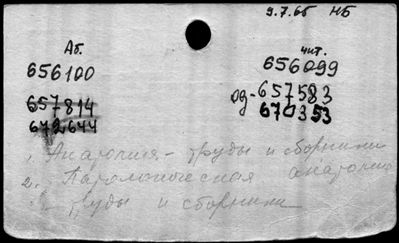 9.7.65 НБ
Аб. чит.
656100 656099
657814 од-657583
672644 670353
1. Анатомия - труды и сборники
2. Патологическая анатомия
труды и сборники